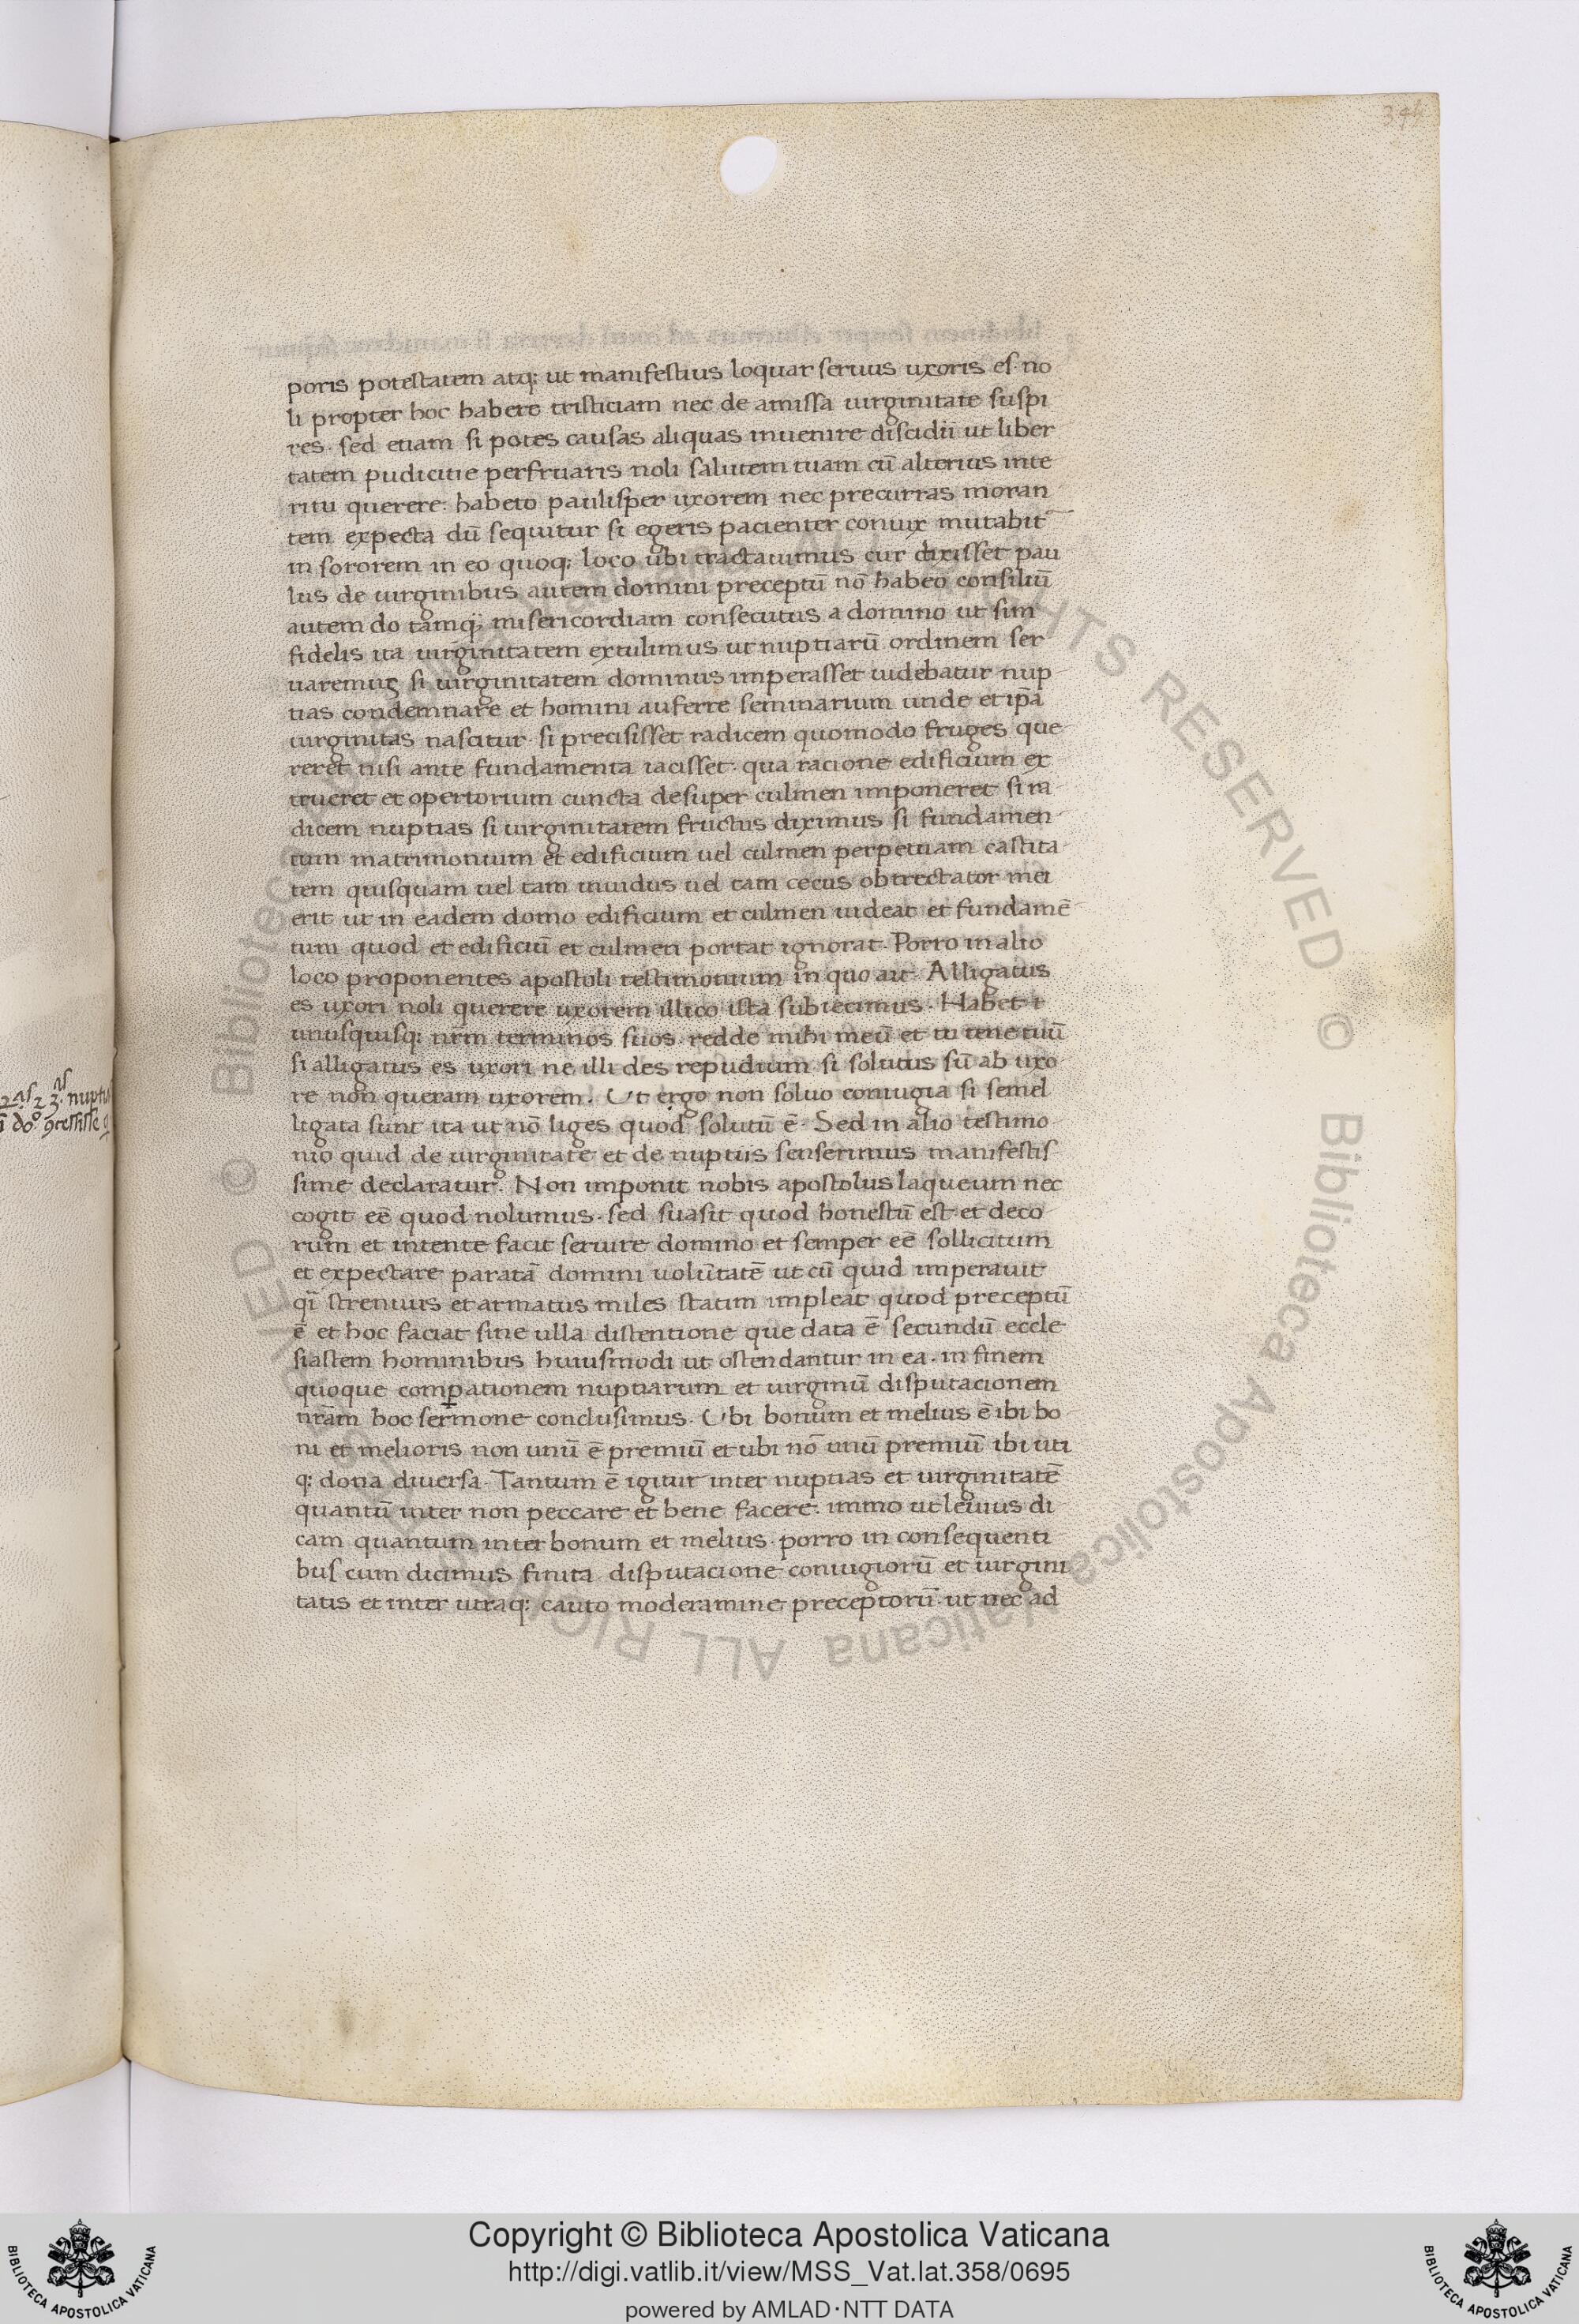 394
poris potestatem atq; ut manifestius loquar seruus uxoris es. no
li propter hoc habere tristiciam nec de amissa uirginitate suspi
res. sed etiam si potes causas aliquas inuenire discidii ut liber
tatem pudicitie perfruaris noli salutem tuam cū alterius inte
ritu querere. habeto paulisper uxorem nec precurras moran
tem expecta dū sequitur si egeris pacienter coniux mutabit̄
in sororem in eo quoq; loco ubi tractauimus cur dixisset pau
lus de uirginibus autem domini preceptū nō habeo consiliū
autem do tamq̄; misericordiam consecutus a domino ut sim
fidelis ita uirginitatem extulimus ut nuptiarū ordinem ser
uaremus si uirginitatem dominus imperasset uidebatur nup
tias condemnare et homini auferre seminarium unde et ip̄a
uirginitas nascitur. si precisisset radicem quomodo fruges que
reret nisi ante fundamenta iacisset. qua racione edificium ex
trueret et opertorium cuncta desuper culmen imponeret si ra
dicem nuptias si uirginitatem fructus diximus si fundamen
tum matrimonium et edificium uel culmen perpetuam castita
tem quisquam uel tam inuidus uel tam cecus obtrectator mei
erit ut in eadem domo edificium et culmen uideat et fundamē
tum quod et edificiū et culmen portat ignorat. Porro in alio
loco proponentes apostoli testimonium in quo ait. Alligatus
es uxori noli querere uxorem illico ista subiecimus. Habet
unusquisq; nr̄m terminos suos. redde mihi meū et tu tene tuū
si alligatus es uxori ne illi des repudium. si solutus sū ab uxo
re non queram uxorem. Ut ergo non soluo coniugia si semel
ligata sunt ita ut nō liges quod solutū ē. Sed in alio testimo
nio quid de uirginitate et de nuptiis senserimus manifestis
sime declaratur. Non imponit nobis apostolus laqueum nec
cogit eē quod nolumus. sed suasit quod honestū est et deco
rum et intente facit seruire domino et semper eē sollicitum
et expectare paratā domini uolūtatē ut cū quid imperauit
q̄i strenuus et armatus miles statim impleat quod preceptū
ē et hoc faciat sine ulla distentione que data ē secundū eccle
siastem hominibus huiusmodi ut ostendantur in ea. in finem
quoque comꝑationem nuptiarum et uirginū disputacionem
nr̄am hoc sermone conclusimus. Ubi bonum et melius ē ibi bo
ni et melioris non unū ē premiū et ubi nō unū premiū ibi uti
q; dona diuersa. Tantum ē igitur inter nuptias et uirginitatē
quantū inter non peccare et bene facere. immo ut leuius di
cam quantum inter bonum et melius. porro in consequenti
bus cum dicimus finita disputacione coniugiorū et uirgini
tatis et inter utraq; cauto moderamine preceptorū. ut nec ad
Copyright © Biblioteca Apostolica Vaticana
http://digi.vatlib.it/view/MSS_Vat.lat.358/0695
powered by AMLAD·NTT DATA